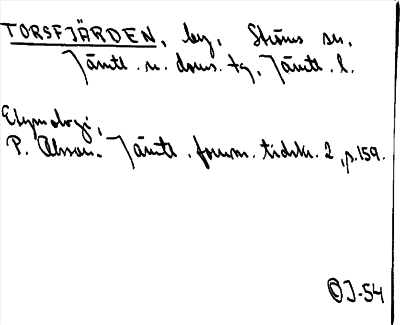 TORSFJÄRDEN, by, Ströms sn,
Jämtl. n. doms. tg, Jämtl. l.
Etymologi,
P. Olsson. Jämtl. fornm. tidskr. 2, p. 159.
OJ-54